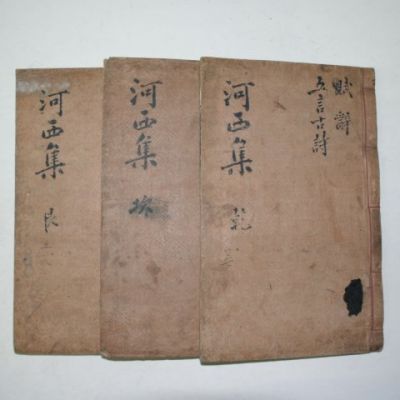 賦 辭
五言古詩
河西集 乾
河西集 坎
河西集 艮